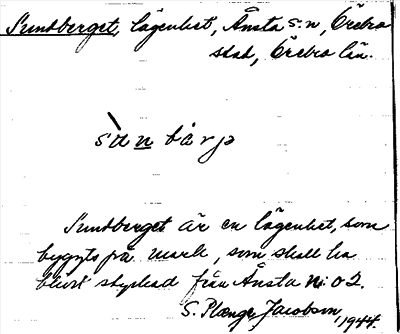 Sundberget, lägenhet, Ånsta s:n, Örebro
stad, Örebro län.
sànbàrjə
Sundberget är en lägenhet, som
byggts på mark, som skall ha
blivit styckad från Ånsta No: 02.
S. Plænge Jacobson, 1944.